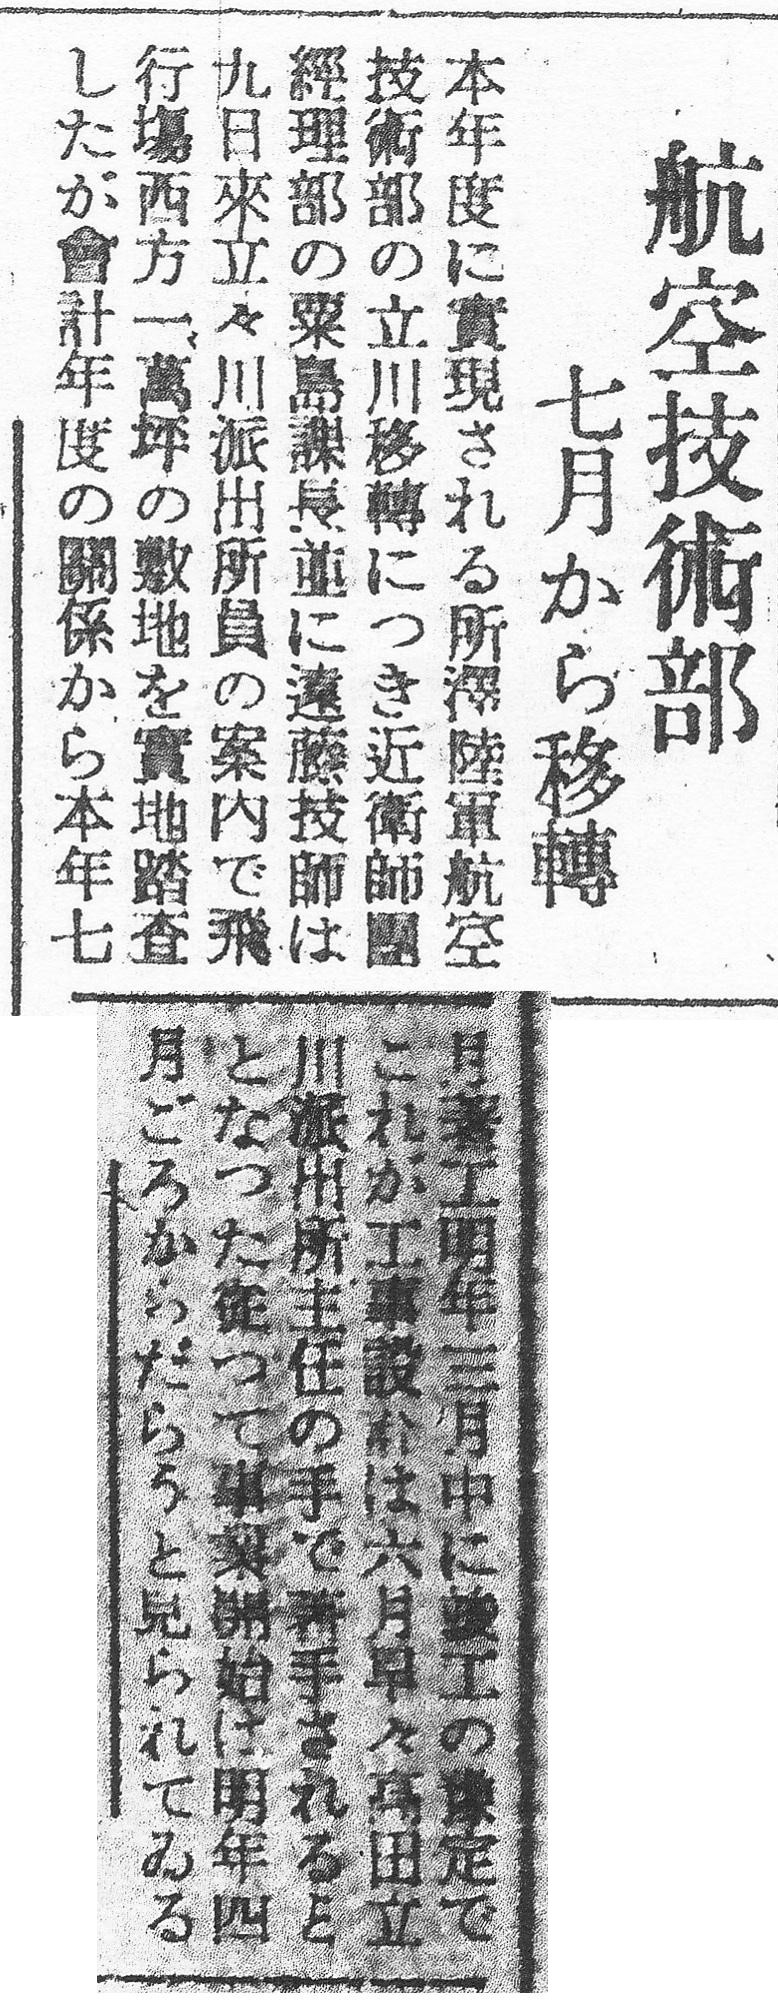 航空技術部
七月から移轉
本年度に實現される所澤陸軍航空
技術部の立川移轉につき近衛師團
經理部の粟島課長並に遠藤技師は
九日來立々川派出所員の案内で飛
行場西方一、萬坪の敷地を實地踏査
したが會計年度の關係から本年七
月着工明年三月中に竣工の豫定で
これが工事設計は六月早々高田立
川派出所主任の手で着手されると
となつた從つて事業開始は明年四
月ごろからだらうと見られてゐる